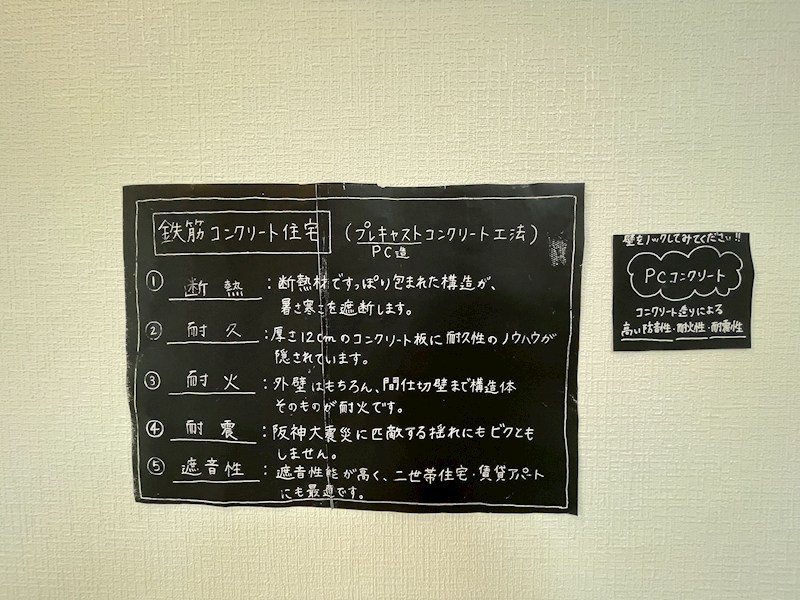 鉄筋コンクリート住宅 (プレキャストコンクリート工法)
PC造
① 断熱 : 断熱材ですっぽり包まれた構造が、
暑さ寒さを遮断します。
② 耐久 : 厚さ12cmのコンクリート板に耐久性のノウハウが
隠されています。
③ 耐火 : 外壁はもちろん、間仕切壁まで構造体
そのものが耐火です。
④ 耐震 : 阪神大震災に匹敵する揺れにもビクとも
しません。
⑤ 遮音性 : 遮音性能が高く、二世帯住宅・賃貸アパート
にも最適です。
壁をノックしてみてください!!
PCコンクリート
コンクリート造りによる
高い防音性・耐火性・耐震性